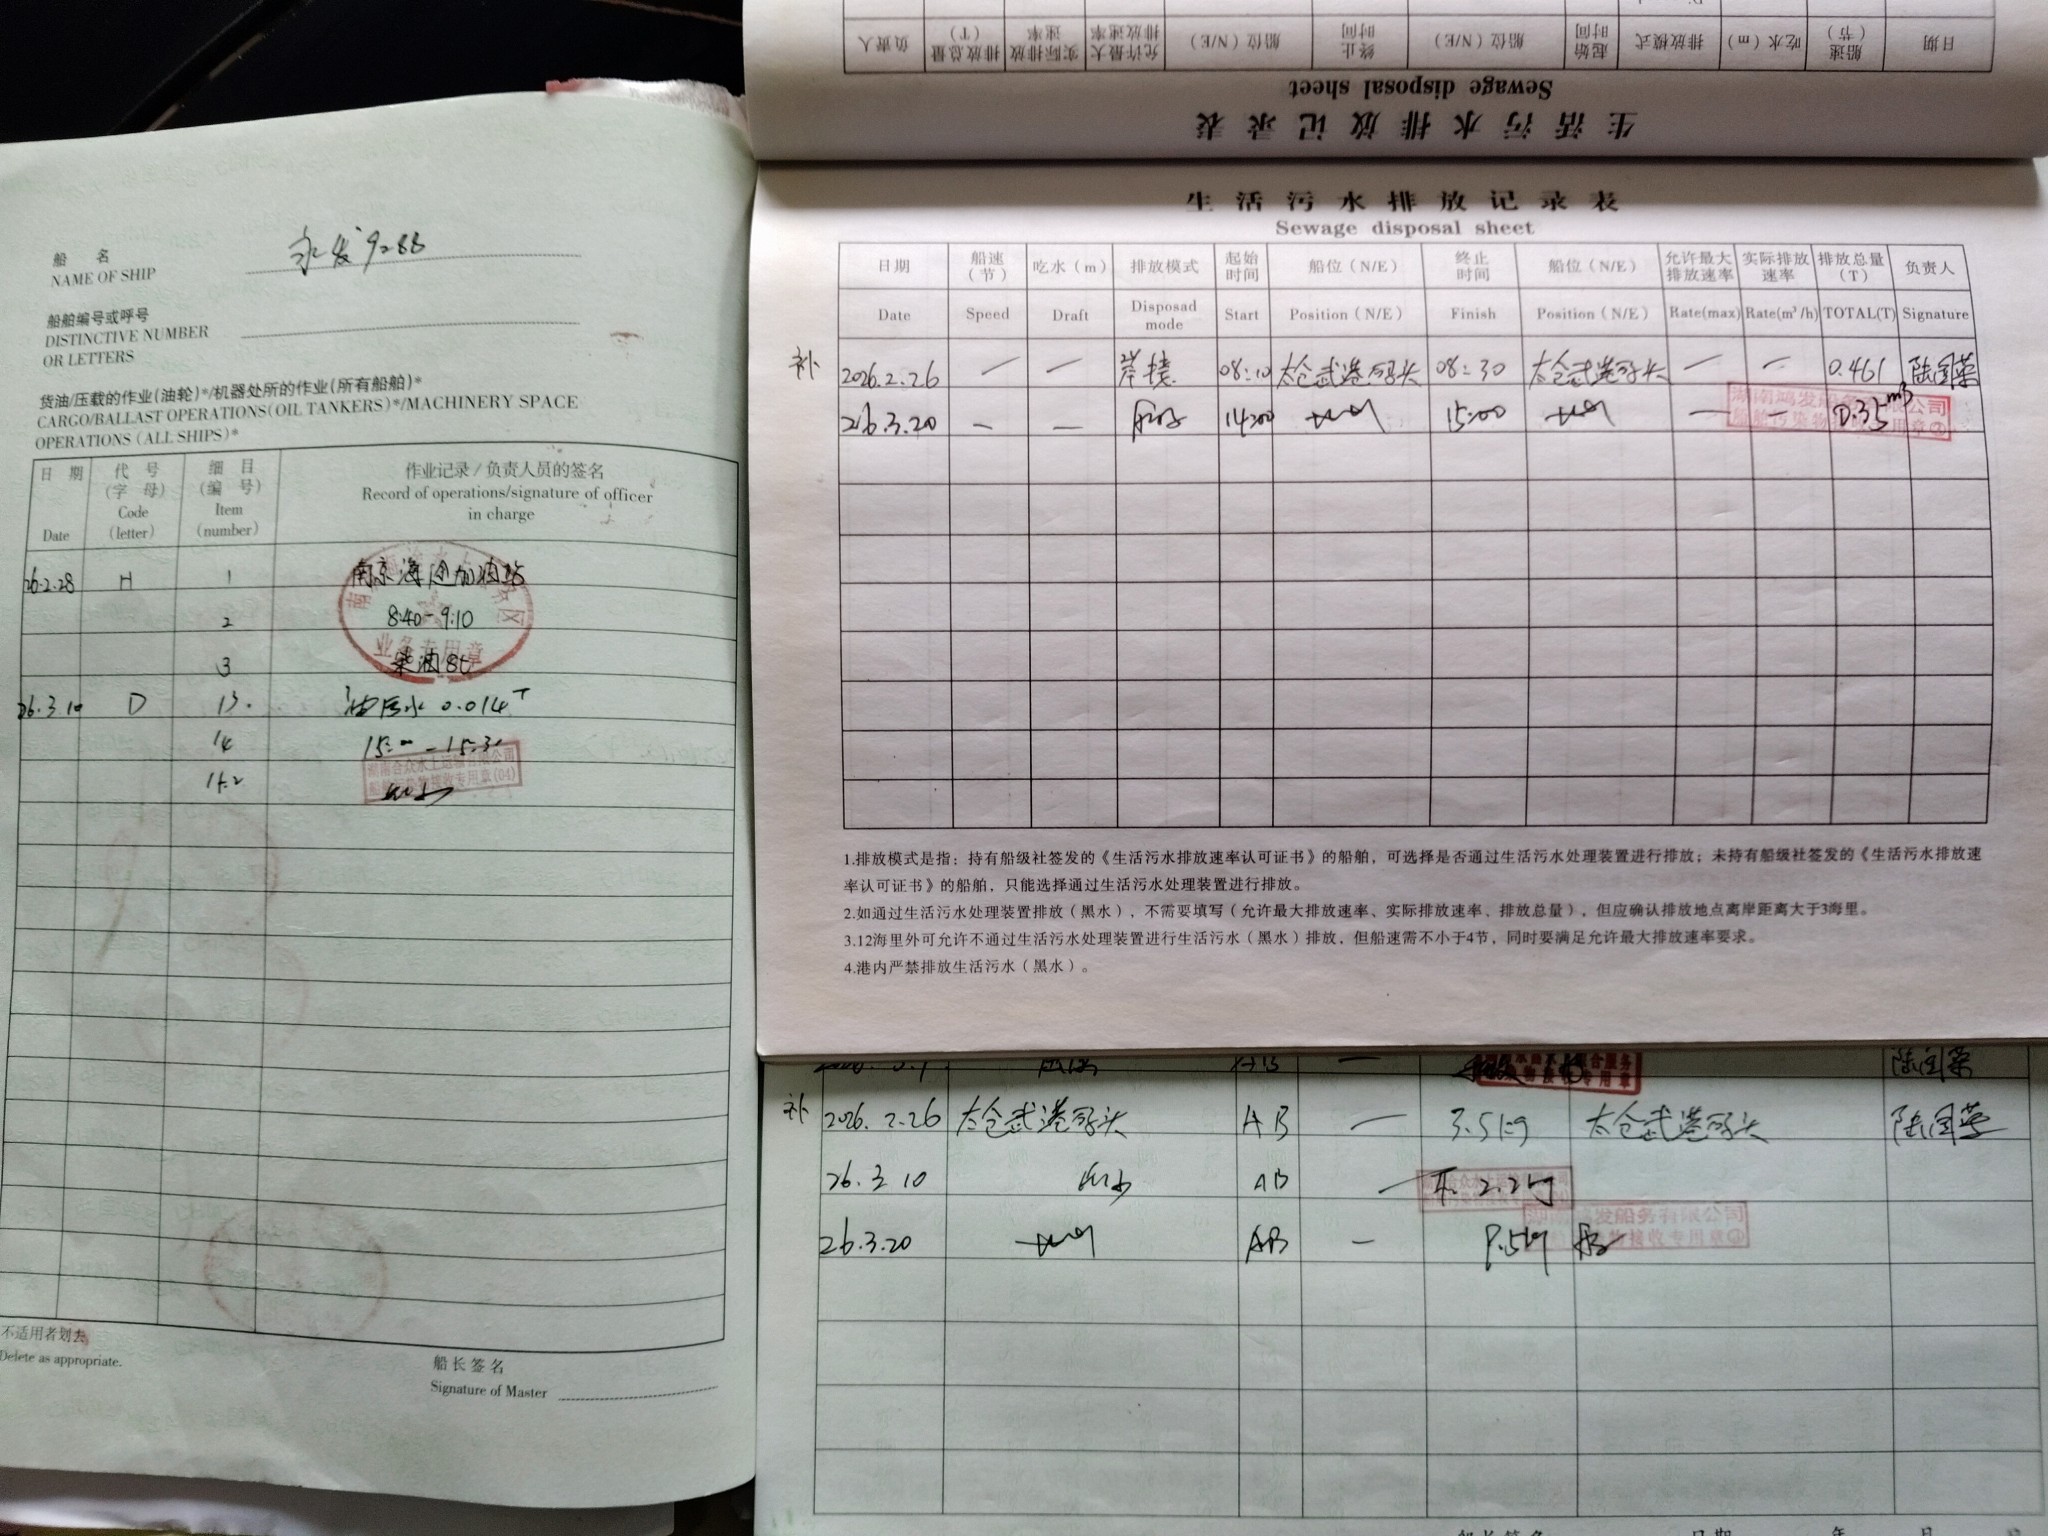 船 名
NAME OF SHIP
永发9288
船舶编号或呼号
DISTINCTIVE NUMBER
OR LETTERS
货油/压载的作业(油轮)*/机器处所的作业(所有船舶)*
CARGO/BALLAST OPERATIONS(OIL TANKERS)*/MACHINERY SPACE
OPERATIONS (ALL SHIPS)*
日 期 代 号 细 目 作业记录/负责人员的签名
(字 母) (编 号) Record of operations/signature of officer
Code Item in charge
Date (letter) (number)
26.2.28 H 1 南京海通加油站
2 8:40-9:10
3 柴油8t
业务专用章
26.3.10 D 13. 油污水 0.014T
14 15:00-15:30
湖南合众水上运输有限公司
船舶污染物接收专用章(04)
不适用者划去
Delete as appropriate.
船长签名
Signature of Master
日期 船速(节) 吃水(m) 排放模式 起始时间 船位(N/E) 终止时间 船位(N/E) 允许最大排放速率 实际排放速率 排放总量(T) 负责人
Sewage disposal sheet
生活污水排放记录表
生活污水排放记录表
Sewage disposal sheet
日期 船速(节) 吃水(m) 排放模式 起始时间 船位(N/E) 终止时间 船位(N/E) 允许最大排放速率 实际排放速率 排放总量(T) 负责人
Date Speed Draft Disposad mode Start Position(N/E) Finish Position(N/E) Rate(max) Rate(m³/h) TOTAL(T) Signature
补 2026.2.26 — — 岸接 08:10 太仓武港码头 08:30 太仓武港码头 — — 0.461 陆国荣
26.3.20 — — 14:00 15:00 — — 0.35m3
湖南鸿发船务有限公司
船舶污染物接收专用章②
1.排放模式是指：持有船级社签发的《生活污水排放速率认可证书》的船舶，可选择是否通过生活污水处理装置进行排放；未持有船级社签发的《生活污水排放速
率认可证书》的船舶，只能选择通过生活污水处理装置进行排放。
2.如通过生活污水处理装置排放（黑水），不需要填写（允许最大排放速率、实际排放速率、排放总量），但应确认排放地点离岸距离大于3海里。
3.12海里外可允许不通过生活污水处理装置进行生活污水（黑水）排放，但船速需不小于4节，同时要满足允许最大排放速率要求。
4.港内严禁排放生活污水（黑水）。
陆国荣
补 2026.2.26 太仓武港码头 AB — 3.5kg 太仓武港码头 陆国荣
26.3.10 AB —
26.3.20 AB —